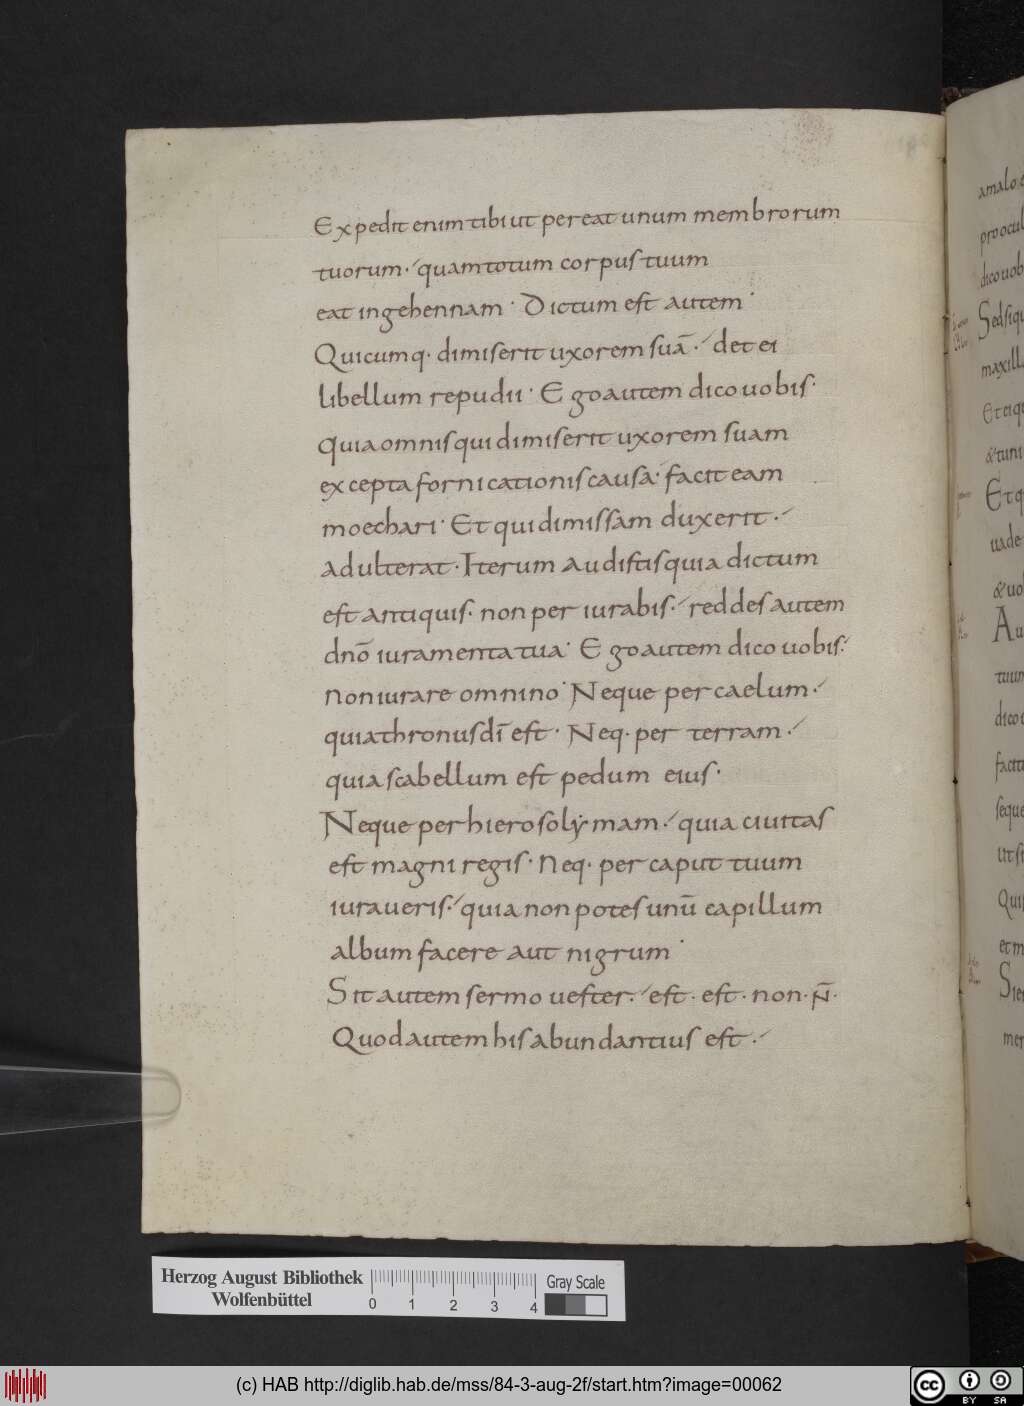 Expedit enim tibi ut pereat unum membrorum
tuorum· quam totum corpus tuum
eat in gehennam· Dictum est autem·
Quicumq· dimiserit uxorem suā· det ei
libellum repudii· Ego autem dico uobis·
quia omnis qui dimiserit uxorem suam
excepta fornicationis causa· facit eam
moechari· Et qui dimissam duxerit·
adulterat· Iterum audistis quia dictum
est antiquis· non periurabis· reddes autem
dnō iuramenta tua· Ego autem dico uobis·
non iurare omnino· Neque per caelum·
quia thronus dī est· Neq· per terram·
quia scabellum est pedum eius·
Neque per hierosolẏmam· quia ciuitas
est magni regis· Neq· per caput tuum
iuraueris· quia non potes unū capillum
album facere aut nigrum·
Sit autem sermo uester· est· est· non· n̄·
Quod autem his abundantius est·
amalo
pro ocul
dico uob
Sed siqu
maxill
Et ei q
& tuni
Et q
uade
& uo
Au
tuum
dico u
facit
seque
Ut s
Qui
et m
mer
Herzog August Bibliothek
Wolfenbüttel
0 1 2 3 4
Gray Scale
(c) HAB http://diglib.hab.de/mss/84-3-aug-2f/start.htm?image=00062
cc BY SA